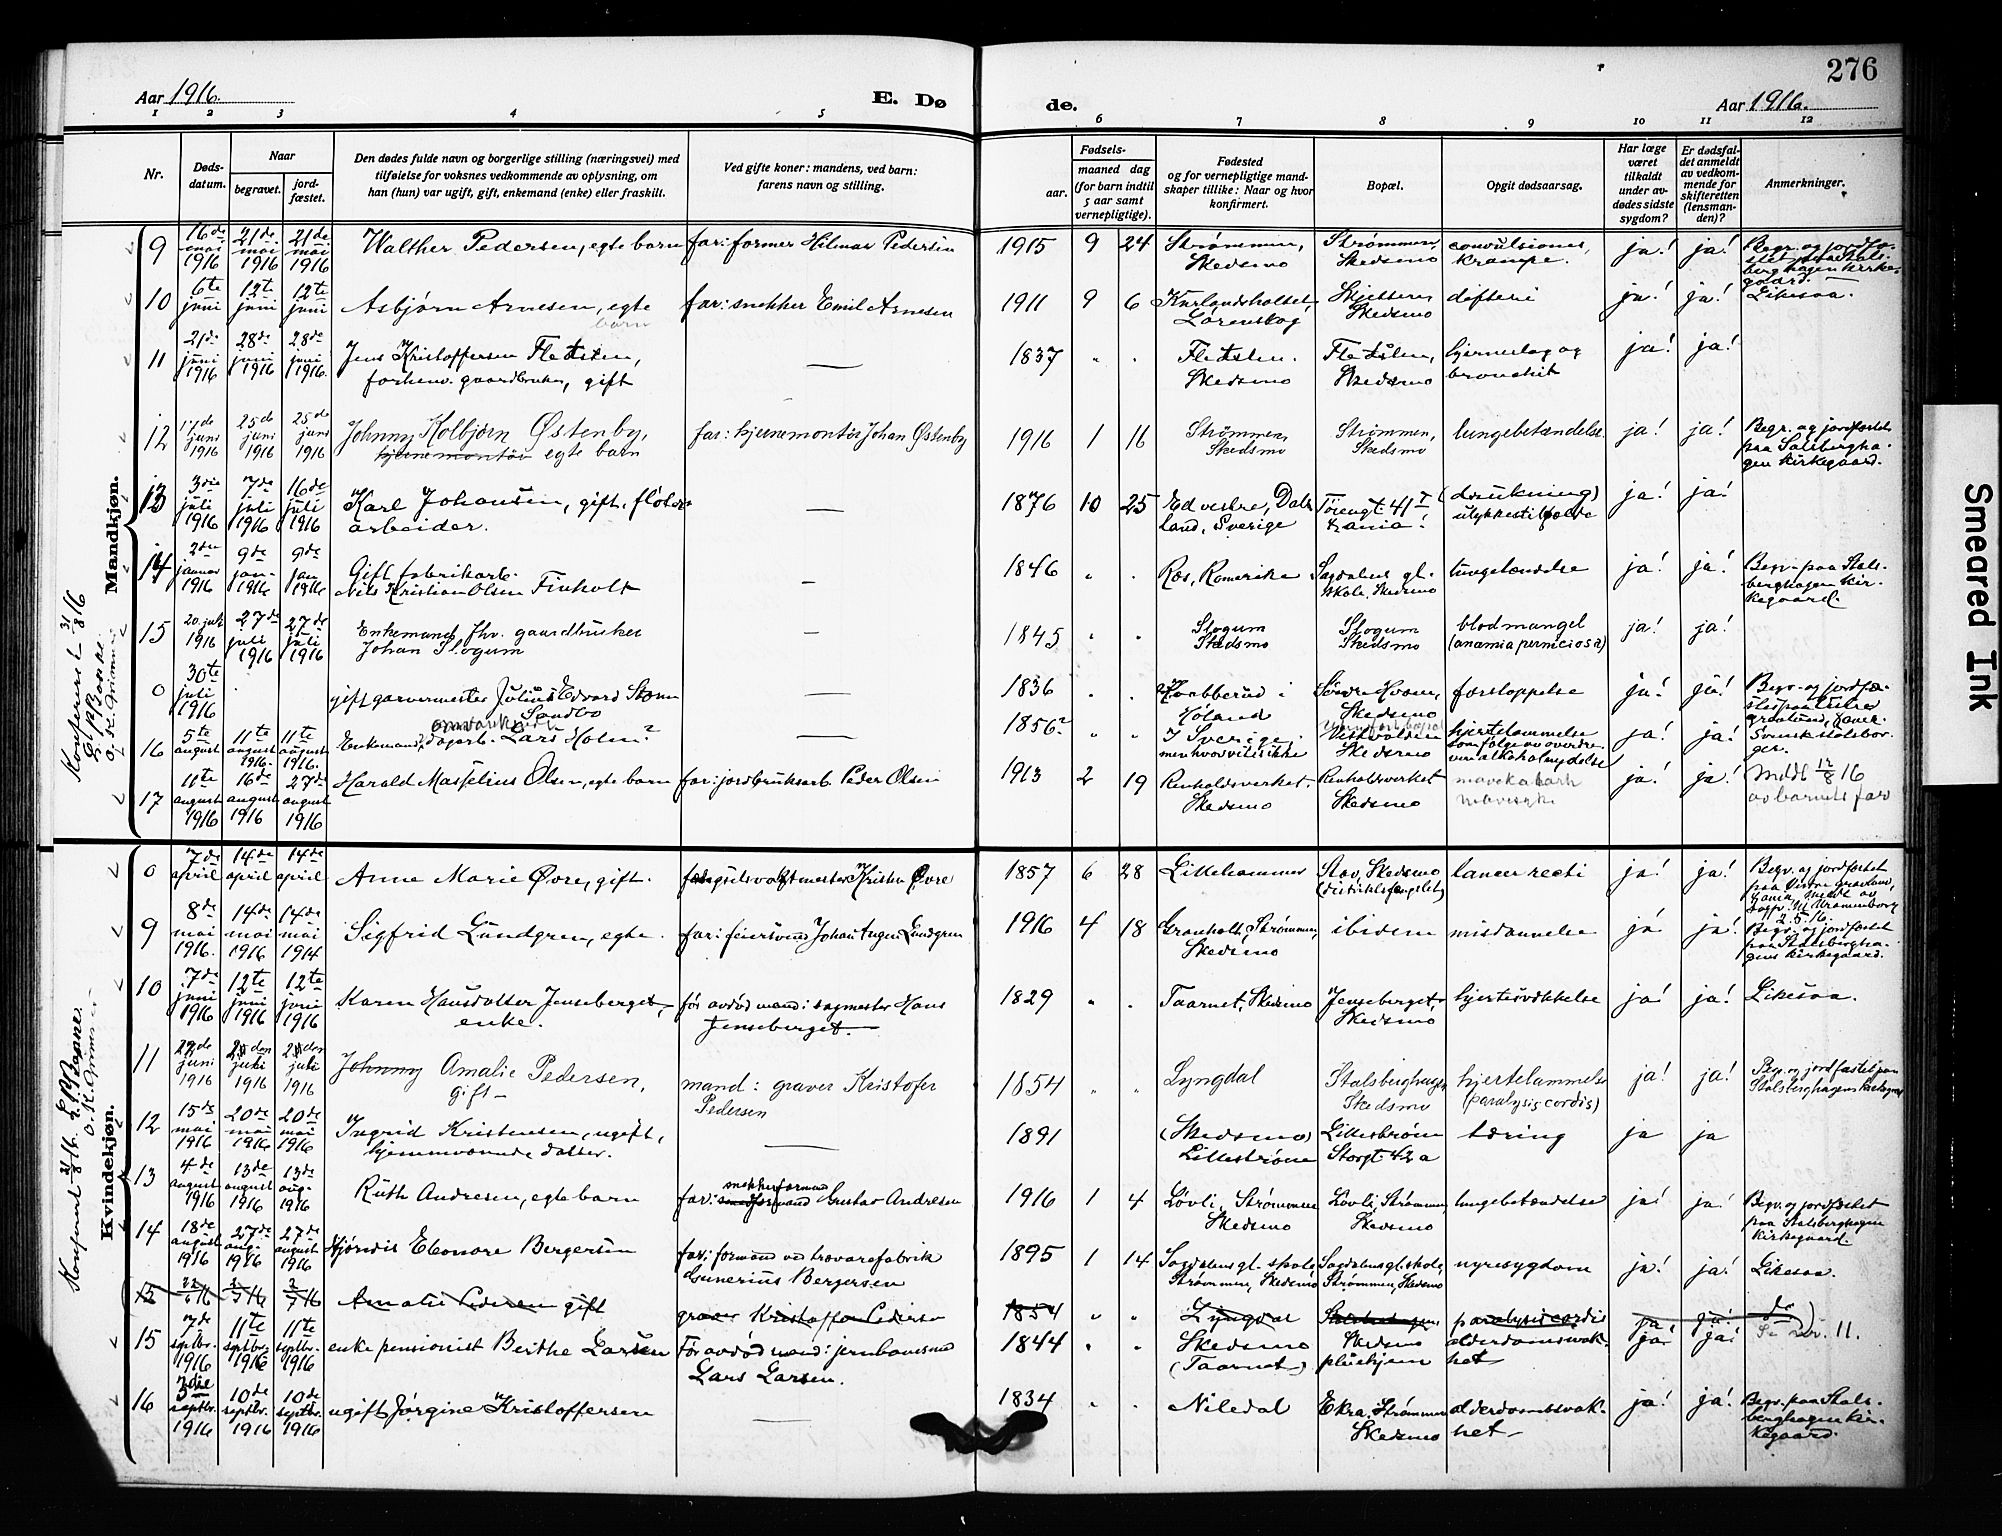 276
Aar 1916.
E. Dø
de.
Aar 1916.
1 2 3 4 5 6 7 8 9 10 11 12
Nr.
Døds-
datum.
Naar
begravet.
jord-
fæstet.
Den dødes fulde navn og borgerlige stilling (næringsvei) med
tilføielse for voksnes vedkommende av oplysning, om
han (hun) var ugift, gift, enkemand (enke) eller fraskilt.
Ved gifte koner: mandens, ved barn:
farens navn og stilling.
Fødsels-
aar.
maaned dag
(for barn indtil
5 aar samt
vernepligtige).
Fødested
og for vernepligtige mand-
skaper tillike: Naar og hvor
konfirmert.
Bopæl.
Opgit dødsaarsag.
Har læge
været
tilkaldt
under av-
dødes sidste
sygdom?
Er dødsfal-
det anmeldt
av vedkom-
mende for
skifteretten
(lensman-
den)?
Anmerkninger.
Mandkjøn.
9 16de mai 1916 21de mai 1916 21de mai 1916 Walther Pedersen, egte barn far: former Hilmar Pedersen 1915 9 24 Strømmen, Skedsmo Strømmen, Skedsmo convulsiones, krampe. ja! ja! Begr. og jordfæ-
stet paa Stals-
berghagen kirke-
gaard.
10 6te juni 12te juni 12te juni Asbjørn Arnesen, egte barn far: snekker Emil Arnesen 1911 9 6 Kurlandsholtet Lørenskog Skjetten Skedsmo difteri ja! ja! Likesaa.
11 21de juni 1916 28de juni 1916 28de juni 1916. Jens Kristoffersen Flatsten,
forhenv. gaardbruker, gift — 1837 " " Flatsten. Skedsmo Flatsten, Skedsmo hjerneslag og bronchit ja! ja!
12 17de juni 1916 25de juni 1916 25de juni 1916 Johnny Kolbjørn Østenby,
hjernemontør egte barn far: hjernemontør Johan Østenby 1916 1 16 Strømmen, Skedsmo Strømmen, Skedsmo lungebetændelse ja! ja! Begr. og jordfæstet
paa Stalsbergha-
gen kirkegaard.
13 3die juli 1916 7de juli 1916 16de juli 1916 Karl Johansen, gift, fløter-
arbeider. — 1876 10 25 Ed vestre, Dals-
land, Sverige Tørengt 41 (drukning) ulykkestilfælde ja! ja!
14 2den januar 1916 9de jan. 1916 9de jan 1916 Gift fabrikarb.
Nils Kristian Olsen Finholt — 1846 " " Næs, Romerike Sagdalens gl. skole, Skedsmo lungebetændelse ja! ja! Begr. paa Stals-
berghagen kir-
kegaard.
15 20. juli 1916 27de juli 1916 27de juli 1916 Enkemand fhv. gaardbruker
Johan Slogum — 1845 " " Slogum Skedsmo Slogum Skedsmo blodmangel (anæmia perniciosa) ja! ja!
0 30te juli 1916 gift garvermester Julius Edvard Strøm
Sandbo — 1836 " " Høland Søndre Hvam, Skedsmo forstoppelse ja! ja! Begr. og jordfæ-
16 5te august 11te august 1916. 11te august 1916. Enkemand, dagarb. Lars Holm? — 1856? " " I Sverige,
men hvor vites ikke Skedsmo hjertelammelse
som følge av overdre-
ven alkoholnydelse ja! ja! Svensk statsbor-
ger.
17 11te august 1916 16de august 1916 27de august 1916 Harald Masselius Olsen, egte barn far: jordbruksarb. Peder Olsen 1913 2 19 Renholdsverket. Skedsmo Renholdsverket Skedsmo mavekatarh ja! ja! Meldt 12/8 16
av barnets far
Konfereret 31/8 16
Kvindekjøn.
0 7de april 14de april 14de april Anne Marie Øvre, gift. fængselsvagtmester Kristen Øvre 1857 6 28 Lillehammer Stav, Skedsmo (distriktsfængslet) cancer recti ja! ja! Begr. og jordfæstet
paa Vestre gravlund,
2.5.16.
9 8de mai 1916. 14de mai 1916 14de mai 1914 Sigfrid Lundgren, egte. far: feiersvend Johan Lundgren 1916 4 18 Granholt, Strømmen, Skedsmo ibidem misdannelse ja ja! Begr. og jordfæstet
paa Stalsbergha-
gens kirkegaard.
10 7de juni 1916 12te juni 1916 12te juni 1916 Karen Hansdatter Jenseberget,
enke. før avdød mand: sagmester Hans
Jenseberget. 1829 " " Taarnet, Skedsmo Jenseberget, Skedsmo hjertesvækkelse ja! ja! Likesaa.
11 juni 1916 juli 1916 juli 1916 Johnny Amalie Pedersen,
gift - mand: graver Kristofer
Pedersen 1854 " " Lyngdal Stalsberghagen Skedsmo hjertelammelse (paralysis cordis) ja! ja! Begr. og jordfæstet paa
Stalsberghagens kirkegaard
12 15de mai 1916 20de mai 1916 20de mai 1916 Ingrid Kristensen, ugift,
hjemmeværende datter. — 1891 (Skedsmo) Lillestrøm Lillestrøm Storgt 42 a tæring ja ja
13 4de august 1916 13de august 1916 13de aug. 1916 Ruth Andresen, egte barn far: snekkerformand Gustav Andresen 1916 1 4 Løvli, Strømmen Skedsmo Løvli, Strømmen, Skedsmo lungebetændelse ja! ja! Begr. og jordfæstet
paa Stalsberghagen
kirkegaard.
14 18de august 1916 27de aug. 1916 27de august 1916 Hjørdis Eleonore Bergersen far: formand ved trævarefabrik
Gunerius Bergersen 1895 1 14 Sagdalens gl. skole, Strømmen, Skedsmo Sagdalens gl. skole, Strømmen, Skedsmo nyresygdom ja! ja! Likesaa.
15 22/6 16 2/7 16 2/7 16 Amalie Pedersen gift graver Kristoffer Pedersen 1854 " " Lyngdal Stalsberghagen paralysis cordis ja ja! do
Se nr. 11.
15 7de septbr. 1916 11te septbr. 1916 11te septbr. 1916 enke pensionist Berthe Larsen Før avdød mand: jernbanemand
Lars Larsen. 1844 " " Skedsmo (Taarnet) Skedsmo pleiehjem alderdomssvak-
het ja! ja!
16 3die septbr. 1916 10de septbr. 1916 10de septbr. 1916 ugift Jørgine Kristoffersen — 1834 " " Nitedal Ekra, Strømmen Skedsmo alderdomssvak-
het - ja! ja! Begr. paa Stals-
berghagen kir-
kegaard.
Smeared Ink